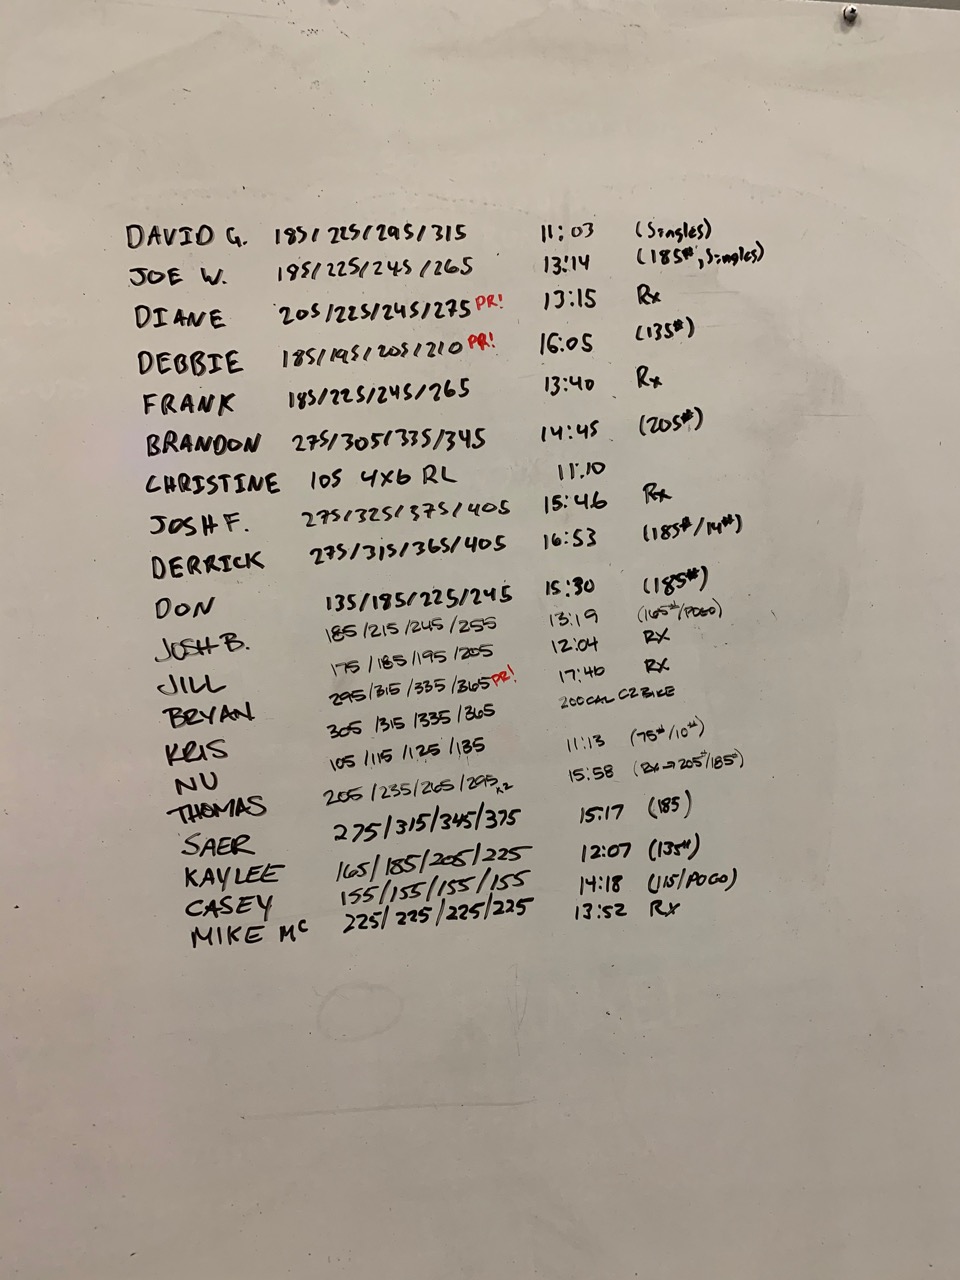 DAVID G. 185/225/295/315 11:03 (Singles)
JOE W. 195/225/245/265 13:14 (185#, Singles)
DIANE 205/225/245/275 PR! 13:15 Rx
DEBBIE 185/195/205/210 PR! 16:05 (135#)
FRANK 185/225/245/265 13:40 Rx
BRANDON 275/305/335/345 14:45 (205#)
CHRISTINE 105 4x6 RL 11:10
JOSH F. 275/325/375/405 15:46 Rx
DERRICK 275/315/365/405 16:53 (185#/14#)
DON 135/185/225/245 15:30 (185#)
JOSH B. 185/215/245/255 13:19 (165#/POGO)
JILL 175/185/195/205 12:04 RX
BRYAN 295/315/335/365 PR! 17:40 RX
KRIS 305/315/335/365 200 CAL C2 BIKE
NU 105/115/125/135 11:13 (75#/10#)
THOMAS 205/235/265/295 x2 15:58 (Rx→205#/185#)
SAER 275/315/345/375 15:17 (185)
KAYLEE 165/185/205/225 12:07 (135#)
CASEY 155/155/155/155 14:18 (115/POGO)
MIKE MC 225/225/225/225 13:52 RX